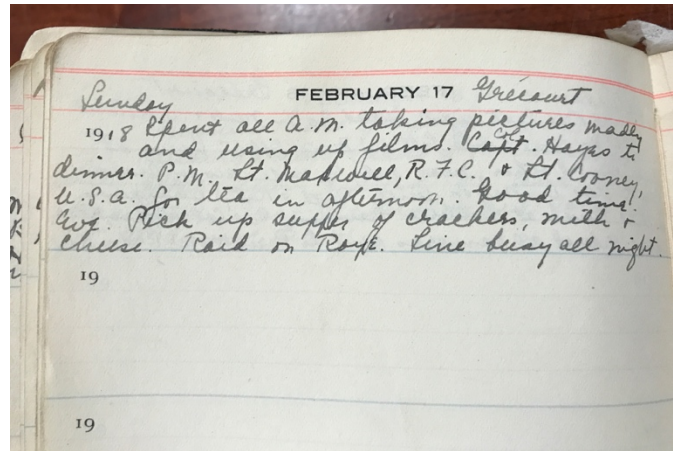 Sunday FEBRUARY 17 Grécourt
1918 Spent all A.M. taking pictures made
Col.
and using up films. Capt. Hayes to
dinner. P.M. Lt. Maxwell, R.F.C. & Lt. Cooney,
U.S.A. for tea in afternoon. Good time.
Eve. Pick up supper of crackers, milk &
cheese. Raid on Roye. Line busy all night.
19
19